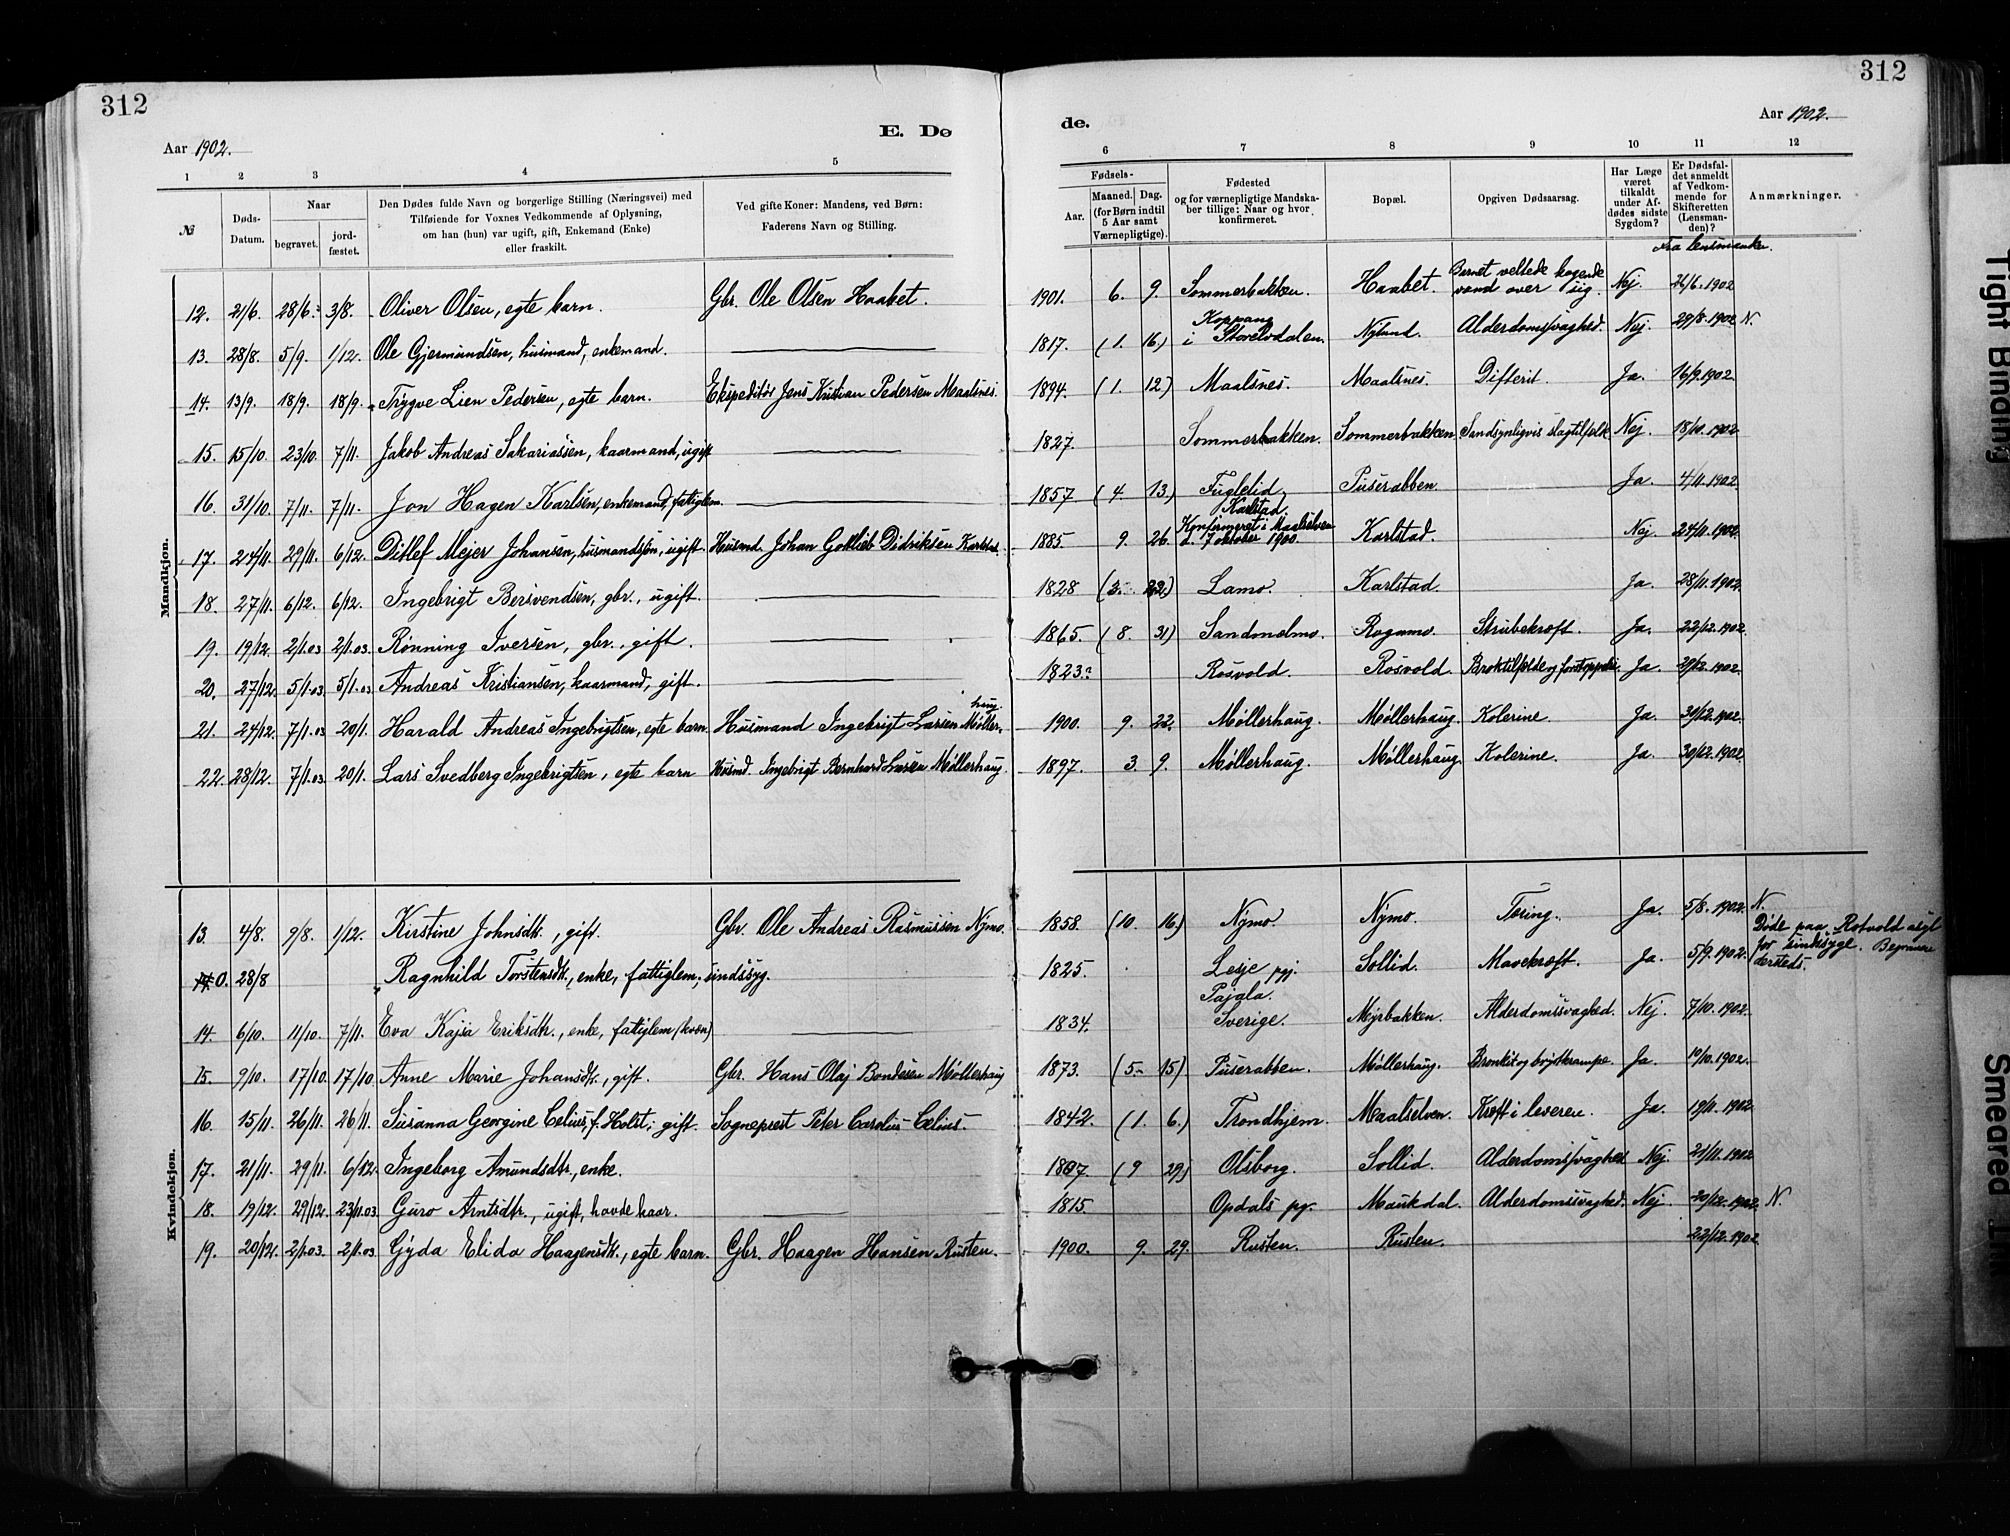 312
312
Aar 1902.
E. Dø
de.
Aar 1902.
1 2 3 4 5
6 7 8 9 10 11 12
№
Døds-Datum.
Naar
begravet.
jord-fæstet.
Den Dødes fulde Navn og borgerlige Stilling (Næringsvei) med
Tilføiende for Voxnes Vedkommende af Oplysning,
om han (hun) var ugift, gift, Enkemand (Enke)
eller fraskilt.
Ved gifte Koner: Mandens, ved Børn:
Faderens Navn og Stilling.
Fødsels-
Aar.
Maaned. Dag.
(for Børn indtil
5 Aar samt
Værnepligtige).
Fødested
og for værnepligtige Mandska-
ber tillige: Naar og hvor
konfirmeret.
Bopæl.
Opgiven Dødsaarsag.
Har Læge
været
tilkaldt
under Af-
dødes sidste
Sygdom?
Er Dødsfal-
det anmeldt
af Vedkom-
mende for
Skifteretten
(Lensman-
den)?
Anmærkninger.
Fra lensmanden.
Mandkjøn.
12. 21/6. 28/6. 3/8. Oliver Olsen, egte barn. Gbr. Ole Olsen Haabet. 1901. 6. 9. Sommerbakken. Haabet. Barnet veltede kogende vand over sig. Nej. 26/6.1902
13. 28/8. 5/9. 1/12. Ole Gjermundsen, husmand, enkemand. 1817. (1. 16.) Koppang i Storelvdalen. Nylund. Alderdomssvaghed. Nej. 29/8.1902 N.
14. 13/9. 18/9. 18/9. Trygve Lien Pedersen, egte barn. Ekspeditør Jens Kristian Pedersen Maalsnes. 1894. (1. 12) Maalsnes. Maalsnes. Difterit. Ja. 16/9.1902
15. 15/10. 23/10. 7/11. Jakob Andreas Sakariassen, kaarmand, ugift 1827. Sommerbakken. Sommerbakken Sandsynligvis slagtilfælde Nej. 18/10.1902
16. 31/10. 7/11. 7/11. Jon Hagen Karlsen, enkemand, fattiglem. 1857 (4. 13.) Fuglelid. Puserabben. Ja. 4/11.1902
17. 24/11. 29/11. 6/12. Ditlef Mejer Johansen, husmandssøn, ugift. Husmd. Johan Gotlieb Didriksen Karlstad. 1885 9. 26. Karlstad. Konfirmeret i Maalselven d. 7 oktober 1900. Karlstad. Nej. 24/11.1902
18. 27/11. 6/12. 6/12. Ingebrigt Bersvendsen, gbr., ugift. 1828 (3. 22) Lamo. Karlstad. Ja. 28/11.1902
19. 19/12. 2/1.03 2/1.03. Rønning Iversen, gbr., gift. 1865. (8. 31) Sandmelmo. Rognmo. Strubekræft. Ja. 22/12.1902
20. 27/12. 5/1.03 5/1.03 Andreas Kristiansen, kaarmand, gift. 1823. Rosvold. Rosvold. Broktilfælde og forstoppelse Ja. 29/12.1902
21. 24/12. 7/1.03 20/1. Harald Andreas Ingebrigtsen, egte barn. Husmand Ingebrigt Larsen Møllerhaug. 1900. 9. 22. Møllerhaug. Møllerhaug. Kolerine Ja. 30/12.1902.
22. 28/12. 7/1.03 20/1. Lars Svedberg Ingebrigtsen, egte barn Husmd. Ingebrigt Bernhard Larsen Møllerhaug. 1897. 3. 9. Møllerhaug. Møllerhaug. Kolerine. Ja. 30/12.1902
Kvindekjøn.
13. 4/8. 9/8. 1/12. Kirstine Johnsdtr., gift. Gbr. Ole Andreas Rasmussen Nymo. 1858. (10. 16.) Nymo. Nymo. Tæring. Ja. 5/8.1902. N.
0. 28/8 Ragnhild Torstensdtr., enke, fattiglem, sindssyg. 1825. Lesje pgj. Sollid. Mavekræft. Ja. 5/9.1902. Døde paa Rotvold asyl for sindssyge. Begravet dersteds.
14. 6/10. 11/10. 7/11. Eva Kajsa Eriksdtr., enke, fattiglem (kvæn) 1834. Pajala. Sverige. Myrbakken. Alderdomssvaghed. Nej. 7/10.1902
15. 9/10. 17/10. 17/10. Anne Marie Johansdtr., gift. Gbr. Hans Olaj Bondesen Møllerhaug 1873. (5. 15) Puserabben. Møllerhaug. Bronkit og brystkrampe. Ja. 10/10.1902.
16. 15/11. 26/11. 26/11. Susanna Georgine Celius, f. Holst, gift. Sogneprest Peter Carolus Celius. 1842. (1. 6.) Trondhjem. Maalselven. Kræft i leveren. Ja. 19/11.1902
17. 21/11. 29/11. 6/12. Ingeborg Amundsdtr., enke. (9 29) Olsborg. Sollid. Alderdomssvaghed Nej. 24/11.1902
18. 19/12. 29/12. Guro Arntsdtr., ugift, havde kaar. 1815. Opdals pg. Maukdal. Alderdomssvaghed. Nej. 20/12.1902. N.
19. 20/12. 2/1.03. 2/1.03. Gyda Elida Haagensdtr., egte barn. Gbr. Haagen Hansen Rusten. 1900. 9. 29. Rusten. Rusten. 22/12.1902
Tight Binding
Smeared Ink